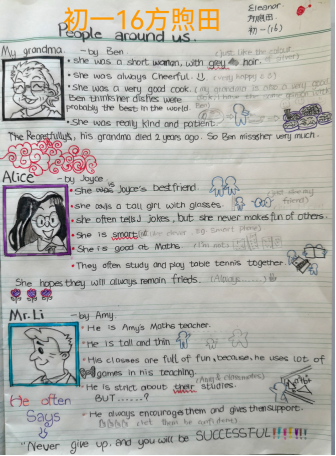 初一16方煦田
Eleanor
方煦田.
初一(16)
People around us...
My grandma. - by Ben.
• She was a short woman, with grey hair.
• She was always Cheerful.
• She was a very good cook.
Ben thinks her dishes were
probably the best in the world.
• She was really kind and patient.
The Regretfully, his grandma died 2 years ago. So Ben misses her very much.
Alice - by Joyce
• She was Joyce's best friend
• She was a tall girl with glasses.
• She often tells jokes, but she never makes fun of others.
• She is smart
• She is good at Maths
• They often study and play table tennis together.
She hopes they will always remain frieds. (Always
Mr.Li - by Amy.
• He is Amy's Maths teacher.
• He is tall and thin
• His classes are full of fun, because, he uses lot of
games in his teaching.
• He is strict about their studies.
BUT......?
• He always encourages them and gives them support.
He often
Says
"Never give up, and you will be SUCCESSFUL!!!!!!